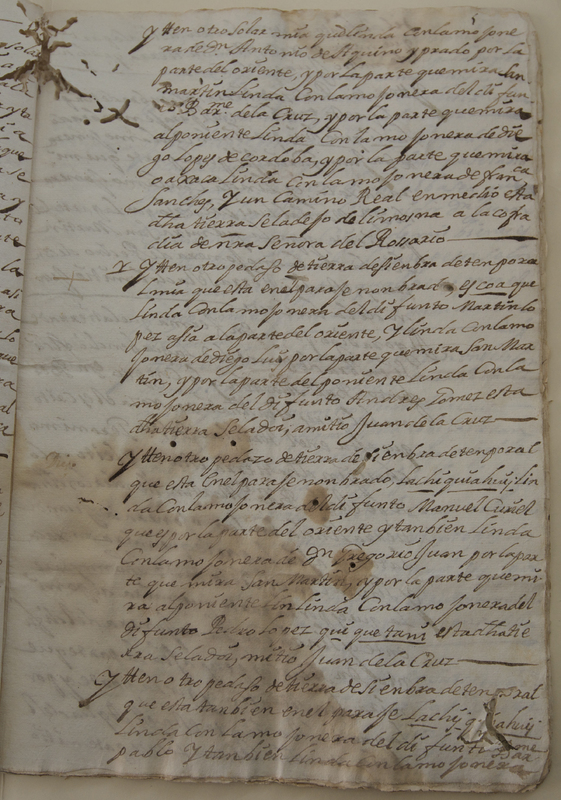 Ytten otro solar mia qᵉ linda Con la mojone
ra de Dⁿ Antonio de Aquino y prado por la
parte del oriente, y por la parte que mira San
martin Linda Con la mojonera del di fun
to Barᵐᵉ de la Cruz, y por la parte que mira
al poniente Linda Con la mojonera de die
go Lopez de cordoba, y por la parte que mira
oaxaca Linda Con la mojonera de fran
ᶜᵃ Sanchez, Y un Camino Real en medio esta
dha tierra se la dejo de limosna a la cofra
dia de nra Senora del Rossario
Ytten otro pedaso de tierra de sienbra de tenpora
l mia que esta en el paraje nonbrado escoa que
Linda Con la mojonera del di funto Martin lo
pez asia a la parte del oriente, Y linda Con la mo
jonera de diego Luis por la parte que mira San Mar
tin, y por la parte del poniente Linda Con la
mojonera del di funto Andres Gomez esta
dha tierra Se la doi, a mi tio Juan de la Cruz
Ytten otro pedazo de tierra de sienbra de tenporal
que esta En el paraje nonbrado, Lachi quiahuij lin
da Con la mojonera del di funto Manuel Curiel
que es por la parte del oriente y tanbien Linda
Con la mojonera de Dⁿ Gregorio Juan por la par
te que mira San Martin, y por la parte que mi
ra al poniente Linda Con la mojonera del
di funto Pedro Lopez qui que tani esta dha tie
rra Se la doi, mi tio Juan de la Cruz
Ytten otro pedaso de tierra de sienbra de tenporal
que esta tanbien en el paraje Lachij quiahuij
Linda Con la mojonera del di funto Barᵐᵉ
pablo Y tanbien Linda Con la mojonera